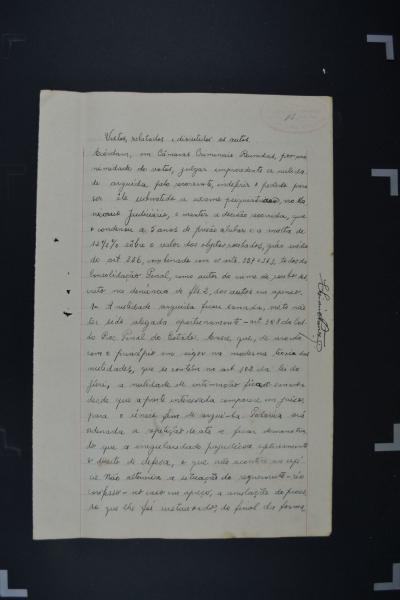 Vistos, relatados e discutidos os autos.
Acórdam, em Câmaras Criminais Reunidas, por una-
nimidade de votos, julgar improcedente a nulida-
de arguida pelo recorrente, indeferir o pedido para
ser êle submetido a exame psiquiatrico, no
Judiciário, e manter a decisão recorrida, que
o condenou a 5 anos de prisão celular e a multa de
12 ½ % sôbre o valor dos objetos roubados, gráo médio
do art. 356, combinado com os arts. 357 e 363, todos da
Consolidação Penal, como autor do crime de roubo des-
crito na denúncia de fls. 2, dos autos em apenso.
A nulidade arguida ficou sanada, visto não
ter sido alegada oportunamente - art. do Cod.
do Proc. Penal do Estado. Acresce que, de acordo
com o princípio em vigor na moderna teoria das
nulidades, que se contém no art. 102 da lei do
júri, a nulidade de intimação fica sanada
desde que a parte interessada compareça em juizo,
para o único fim de argui-la. Todavia será
ordenada a repetição do ato si ficar demonstra-
do que a irregularidade prejudicou efetivamente
o direito de defesa, o que não acontece na espé-
cie. Não atenúa a situação do requerente - réo
confesso - no caso em apreço, a anulação do proces-
so que lhe foi instaurado, do final da forma